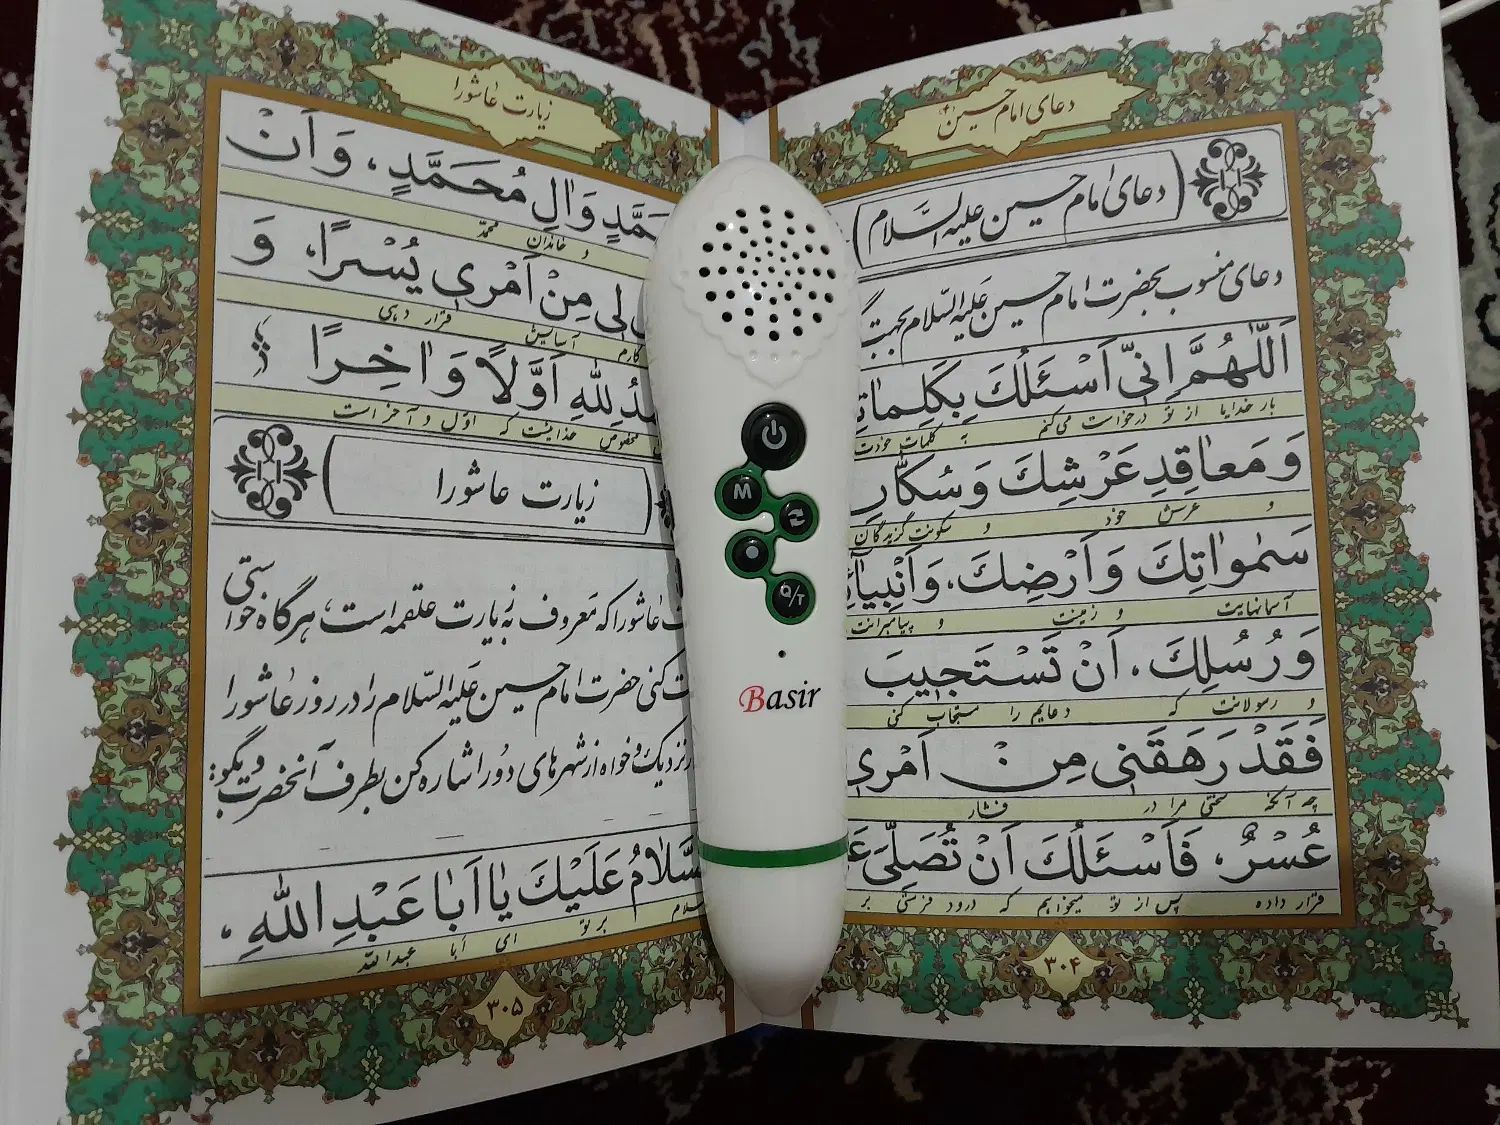 دعای امام حسین
دعای امام حسین علیه السلام
دعای منسوب بحضرت امام حسین علیه السلام بجهت
اَللّٰهُمَّ اِنّی اَسْئَلُكَ بِكَلِمٰاتِ
بار خدایا از تو درخواست می‌کنم به کلمات خودت
وَ مَعٰاقِدِ عَرْشِكَ وَ سُكّٰانِ
و عرش خود و سکونت گزیدگان
سَمٰوٰاتِكَ وَ اَرْضِكَ، وَ اَنْبِیٰائِ
آسمانهایت و زمینت و پیامبرانت
وَ رُسُلِكَ، اَنْ تَسْتَجیبَ
و رسولانت که دعایم را مستجاب کنی
فَقَدْ رَهَقَنی مِنْ اَمْری
چه آنکه سختی مرا در فشار
عُسْرٌ، فَاَسْئَلُكَ اَنْ تُصَلِّیَ عَ
قرار داده پس از تو میخواهم که درود فرستی بر
۳۰۴
زیارت عاشورا
مُحَمَّدٍ وَ اٰلِ مُحَمَّدٍ، وَ اَنْ
و خاندان محمد
لی مِنْ اَمْری یُسْراً، وَ
کارم آسایش قرار دهی
لِلّٰهِ اَوَّلاً وَ اٰخِراً
مخصوص خدائیست که اول و آخر است
زیارت عاشورا
عاشورا که معروف به زیارت علقمه است، هرگاه خواستی
کنی حضرت امام حسین علیه السلام را در روز عاشورا
نزدیک و خواه از شهرهای دور اشاره کن بطرف آنحضرت و بگو:
اَلسَّلاٰمُ عَلَیْكَ یٰا اَبٰا عَبْدِ اللّٰهِ،
سلام بر تو ای ابا عبدالله
۳۰۵
M
Q/T
Basir